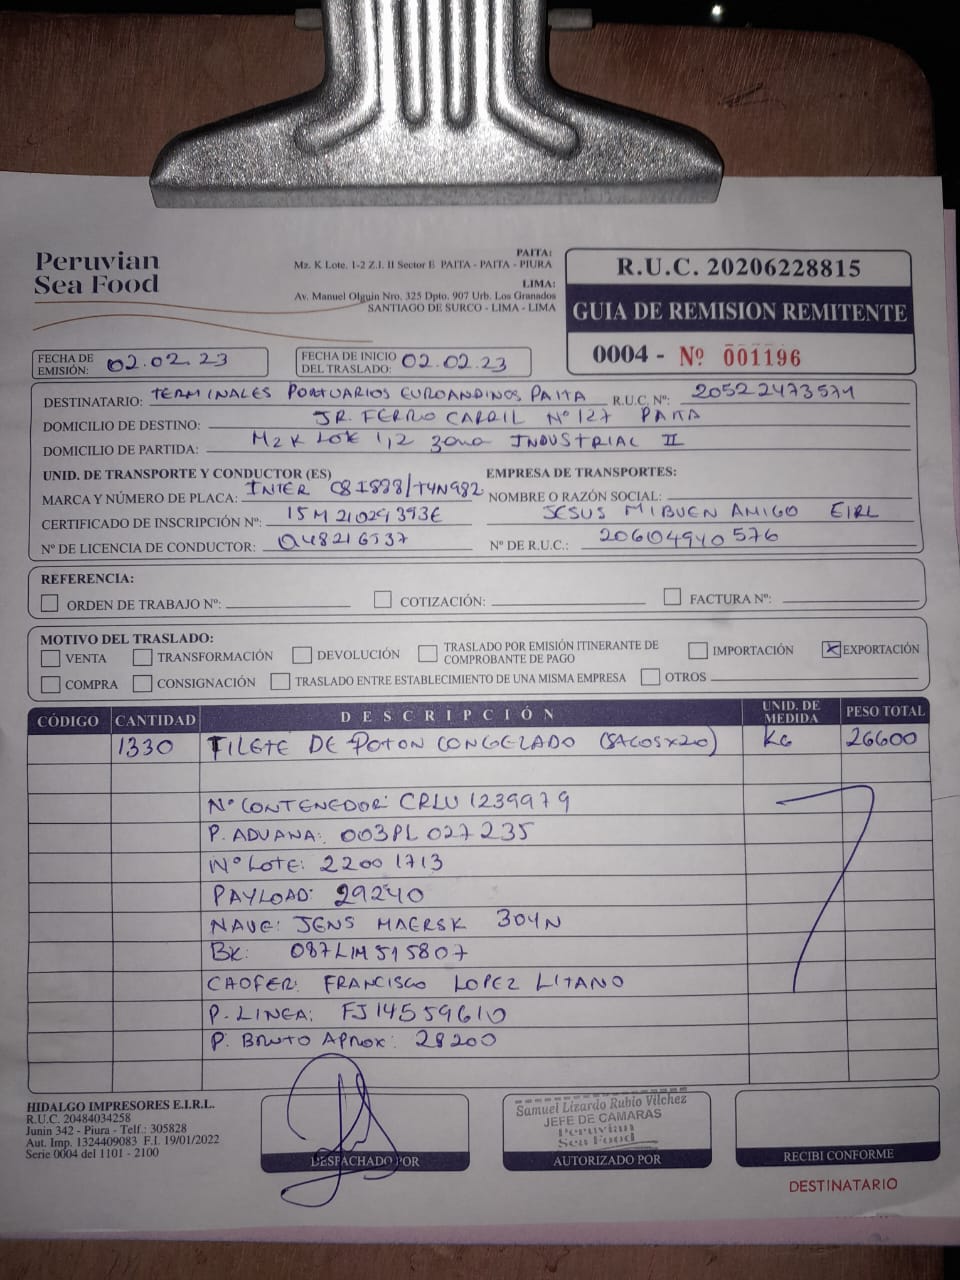 Peruvian
Sea Food
PAITA:
Mz. K Lote. 1-2 Z.I. II Sector E PAITA - PAITA - PIURA
LIMA:
Av. Manuel Olguin Nro. 325 Dpto. 907 Urb. Los Granados
SANTIAGO DE SURCO - LIMA - LIMA
R.U.C. 20206228815
GUIA DE REMISION REMITENTE
0004 - Nº 001196
FECHA DE EMISIÓN: 02.02.23
FECHA DE INICIO DEL TRASLADO: 02.02.23
DESTINATARIO: TERMINALES PORTUARIOS EUROANDINOS PAITA R.U.C. Nº: 20522473571
DOMICILIO DE DESTINO: JR. FERRO CARRIL Nº 127 PAITA
DOMICILIO DE PARTIDA: MZ K LOTE 1,2 ZONA INDUSTRIAL II
UNID. DE TRANSPORTE Y CONDUCTOR (ES)
MARCA Y NÚMERO DE PLACA: INTER C8I828/T4N982
CERTIFICADO DE INSCRIPCIÓN Nº: 15M21029393E
Nº DE LICENCIA DE CONDUCTOR: Q48216537
EMPRESA DE TRANSPORTES:
NOMBRE O RAZÓN SOCIAL:
JESUS MI BUEN AMIGO EIRL
Nº DE R.U.C.: 20604940576
REFERENCIA:
ORDEN DE TRABAJO Nº: COTIZACIÓN: FACTURA Nº:
MOTIVO DEL TRASLADO:
VENTA TRANSFORMACIÓN DEVOLUCIÓN TRASLADO POR EMISIÓN ITINERANTE DE COMPROBANTE DE PAGO IMPORTACIÓN EXPORTACIÓN
COMPRA CONSIGNACIÓN TRASLADO ENTRE ESTABLECIMIENTO DE UNA MISMA EMPRESA OTROS
CÓDIGO CANTIDAD DESCRIPCIÓN UNID. DE MEDIDA PESO TOTAL
1330 FILETE DE POTON CONGELADO (SACOSX20) KG 26600
Nº CONTENEDOR: CRLU 1239979
P. ADUANA: 003PL027235
Nº LOTE: 22001713
PAYLOAD: 29240
NAVE: JENS MAERSK 304N
BK: 087LIM515807
CHOFER: FRANCISCO LOPEZ LITANO
P. LINEA: FJ14559610
P. BRUTO APROX: 28200
HIDALGO IMPRESORES E.I.R.L.
R.U.C. 20484034258
Junin 342 - Piura - Telf.: 305828
Aut. Imp. 1324409083 F.I. 19/01/2022
Serie 0004 del 1101 - 2100
DESPACHADO POR
Samuel Lizardo Rubio Vilchez
JEFE DE CAMARAS
Peruvian
Sea Food
AUTORIZADO POR
RECIBI CONFORME
DESTINATARIO